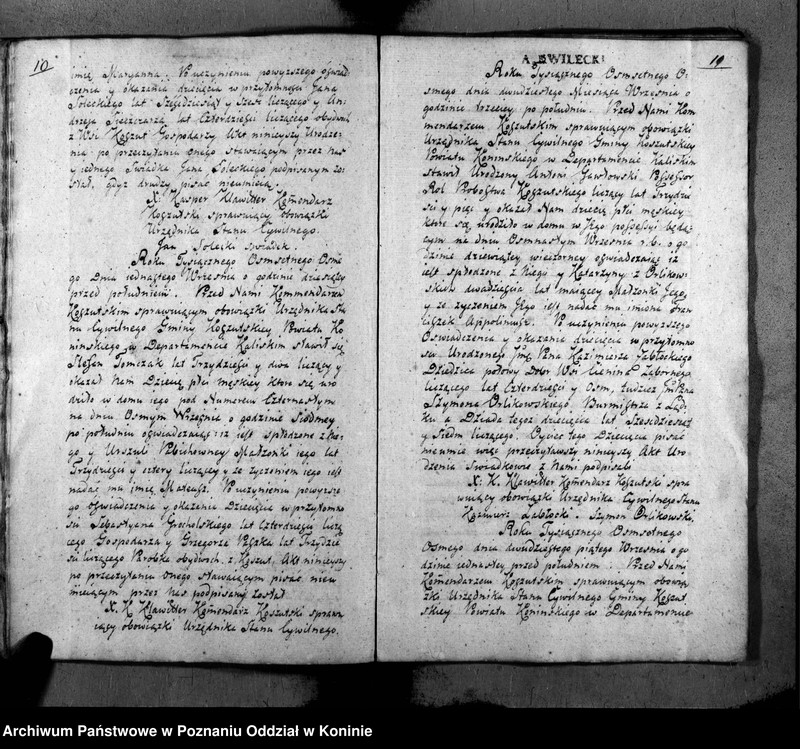 10
imię Maryanna. Po uczynieniu powyższego oświad
czenia y okazania dziecięcia w przytomności Jana
Soleckiego lat Sześćdziesiąt y Sześć liczącego y An
drzeja lat Czterdzieści liczącego obydwóch
z Wsi Koszut Gospodarzy Akt ninieyszy Urodze
nia po przeczytaniu onego Stawaiącym przez nas
y jednego Swiadka Jana Soleckiego podpisanym zo
stał, gdyż drudzy pisać nieumieią.
X: Kasper Klawitter Komendarz
Koszutski sprawuiący obowiązki
Urzędnika Stanu Cywilnego.
Jan Solecki swiadek.
Roku Tysiącznego Osmsetnego Osme
go Dnia iedenastego Września o godzinie dziesiątey
przed południem. Przed Nami Kommendarzem
Koszutskim sprawuiącym obowiązki Urzędnika Sta
nu Cywilnego Gminy Koszutskiey Powiatu Ko
ninskiego w Departamencie Kaliskim stawił się
Stefan Tomczak lat Trzydzieści y dwa liczący y
okazał Nam Dziecię płci męskiey które się uro
dziło w domu iego pod Numerem Czternastym
na dniu Osmym Września o godzinie Siodmey
po południu oświadczaiąc iż iest spłodzone z Nie
go y Urszuli Małżonki iego lat
Trzydzieści y cztery liczącey y że życzeniem iego iest
nadać mu imię Mateusz. Po uczynieniu powyższe
go oświadczenia y okazania Dziecięcia w przytomno
ści Sebastyana Grocholskiego lat Czterdzieści liczą
cego Gospodarza y Grzegorza lat Trzydzie
ści liczącego Parobka obydwóch z Koszut. Akt ninieyszy
po przeczytaniu onego Stawaiącym pisać nieu
mieiącym przez Nas podpisany został
X. K. Klawitter Komendarz Koszutski sprawu
iący obowiązki Urzędnika Stanu Cywilnego.
A. BWILECKI
19
Roku Tysiącznego Osmsetnego O:
smego dnia dwudziestego Miesiąca Września o
godzinie trzeciey po południu. Przed Nami Kom
mendarzem Koszutskim sprawuiącym obowiązki
Urzędnika Stanu Cywilnego Gminy Koszutskiey
Powiatu Koninskiego w Departamencie Kaliskim
stawił Urodzony Antoni Gawłowski Possessor
Rol Probostwa Koszutskiego liczący lat Trzydzie
ści y pięć y okazał Nam dziecię płci męskiey
które się urodziło w domu w Jego possessyi będą
cym na dniu Osmnastym Września r. b. o go
dzinie dziewiątey wieczorney oświadczaiąc iż
iest spłodzone z Niego y Katarzyny z Orlikow
skich dwadzieścia lat maiącey Małżonki Jego,
y że życzeniem Jego iest nadać mu imiona Fran
ciszek Appolinary. Po uczynieniu powyższego
Oświadczenia y okazania dziecięcia w przytomno
ści Urodzonego Jmć Pana Kazimierza Zabłockiego
Dziedzica połowy Dobr Wsi Cienina Zabornego
liczącego lat Czterdzieści y Osm, tudzież Jmć Pana
Szymona Orlikowskiego Burmistrza z Ląd
ku a Dziada tegoż dziecięcia lat Sześćdziesiąt
y Siedm liczącego. Oyciec tego Dziecięcia pisać
nieumie więc przeczytawszy ninieyszy Akt Uro
dzenia Swiadkowie z Nami podpisali
X: K. Klawitter Komendarz Koszutski spra
wuiący obowiązki Urzędnika Cywilnego Stanu
Kazimierz Zabłocki. Szymon Orlikowski.
Roku Tysiącznego Osmsetnego
Osmego dnia dwudziestego piątego Września o go
dzinie iedenastey przed południem. Przed Nami
Komendarzem Koszutskim sprawuiącym obowią
zki Urzędnika Stanu Cywilnego Gminy Koszut
skiey Powiatu Koninskiego w Departamencie
Archiwum Państwowe w Poznaniu Oddział w Koninie